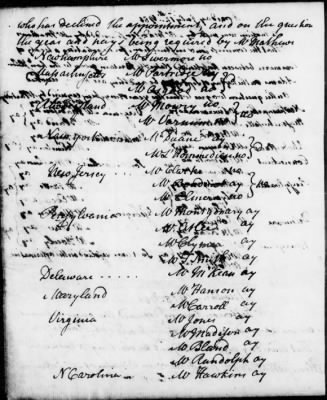 who has declined the appointment, and on the question
the yeas and nays being required by Mr Mathews
Newhampshire Mr Livermore no
Massachusetts Mr Partridge ay
Mr Osgood no
Rhode Island Mr Mowry no
Mr Varnum no } no
New york Mr Duane ay
Mr L'Hommedieu no
New Jersey Mr Clarke
Mr ay
Mr Elmer no
Pensylvania Mr Montgomery ay
Mr Atlee ay
Mr Clymer ay
Mr T. Smith ay
Delaware Mr McKean ay
Maryland Mr Hanson ay
Mr Carroll ay
Virginia Mr Jones ay
Mr Madison ay
Mr Bland ay
Mr Randolph ay
N Carolina Mr Hawkins ay